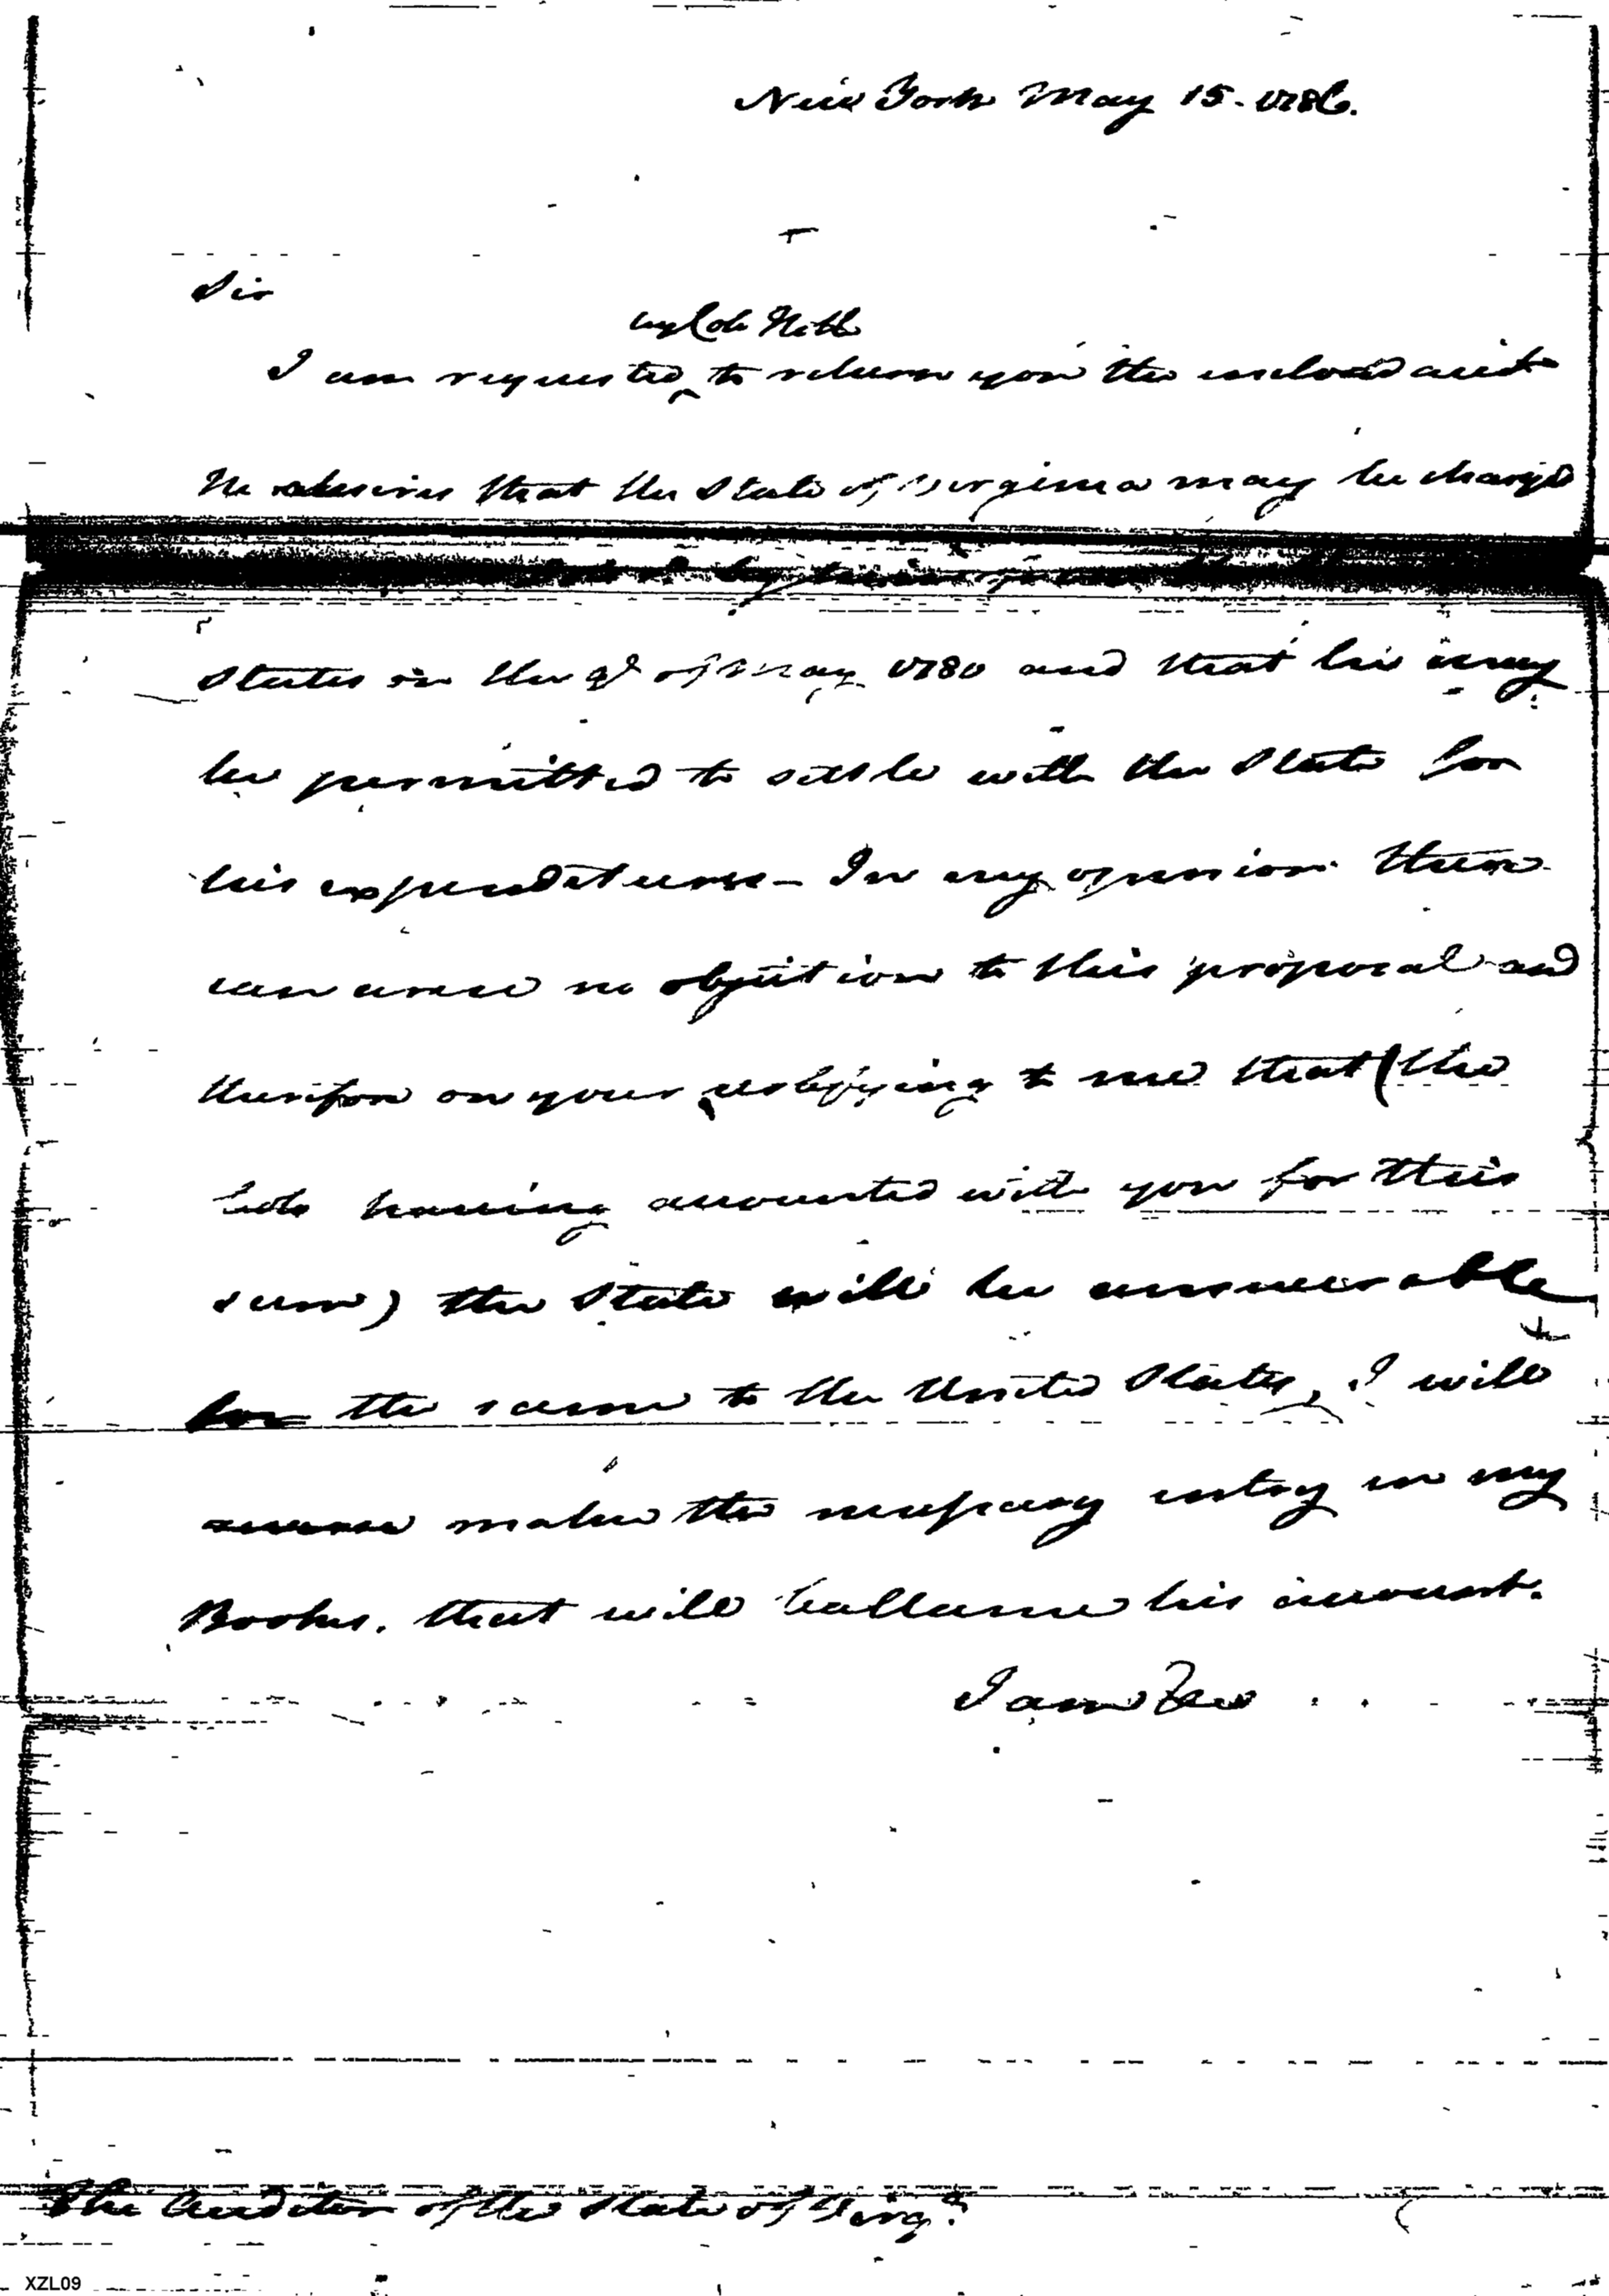 New York May 15. 1786.
Sir
by Col. Nett
I am requested to return you the enclosed acct
He desires that the State of Virginia may be charged
by
States in the of May 1780 and that he may
be permitted to settle with the State for
his expenditures – In my opinion there
can arise no objection to this proposal and
therefore on your certifying to me that (the
Colo having accounted with you for this
sum) the State will be answerable
for the same to the United States, I will
make the necessary entry in my
Books. that will ballance his account.
I am &c
The Auditor of the State of Virga.
XZL09